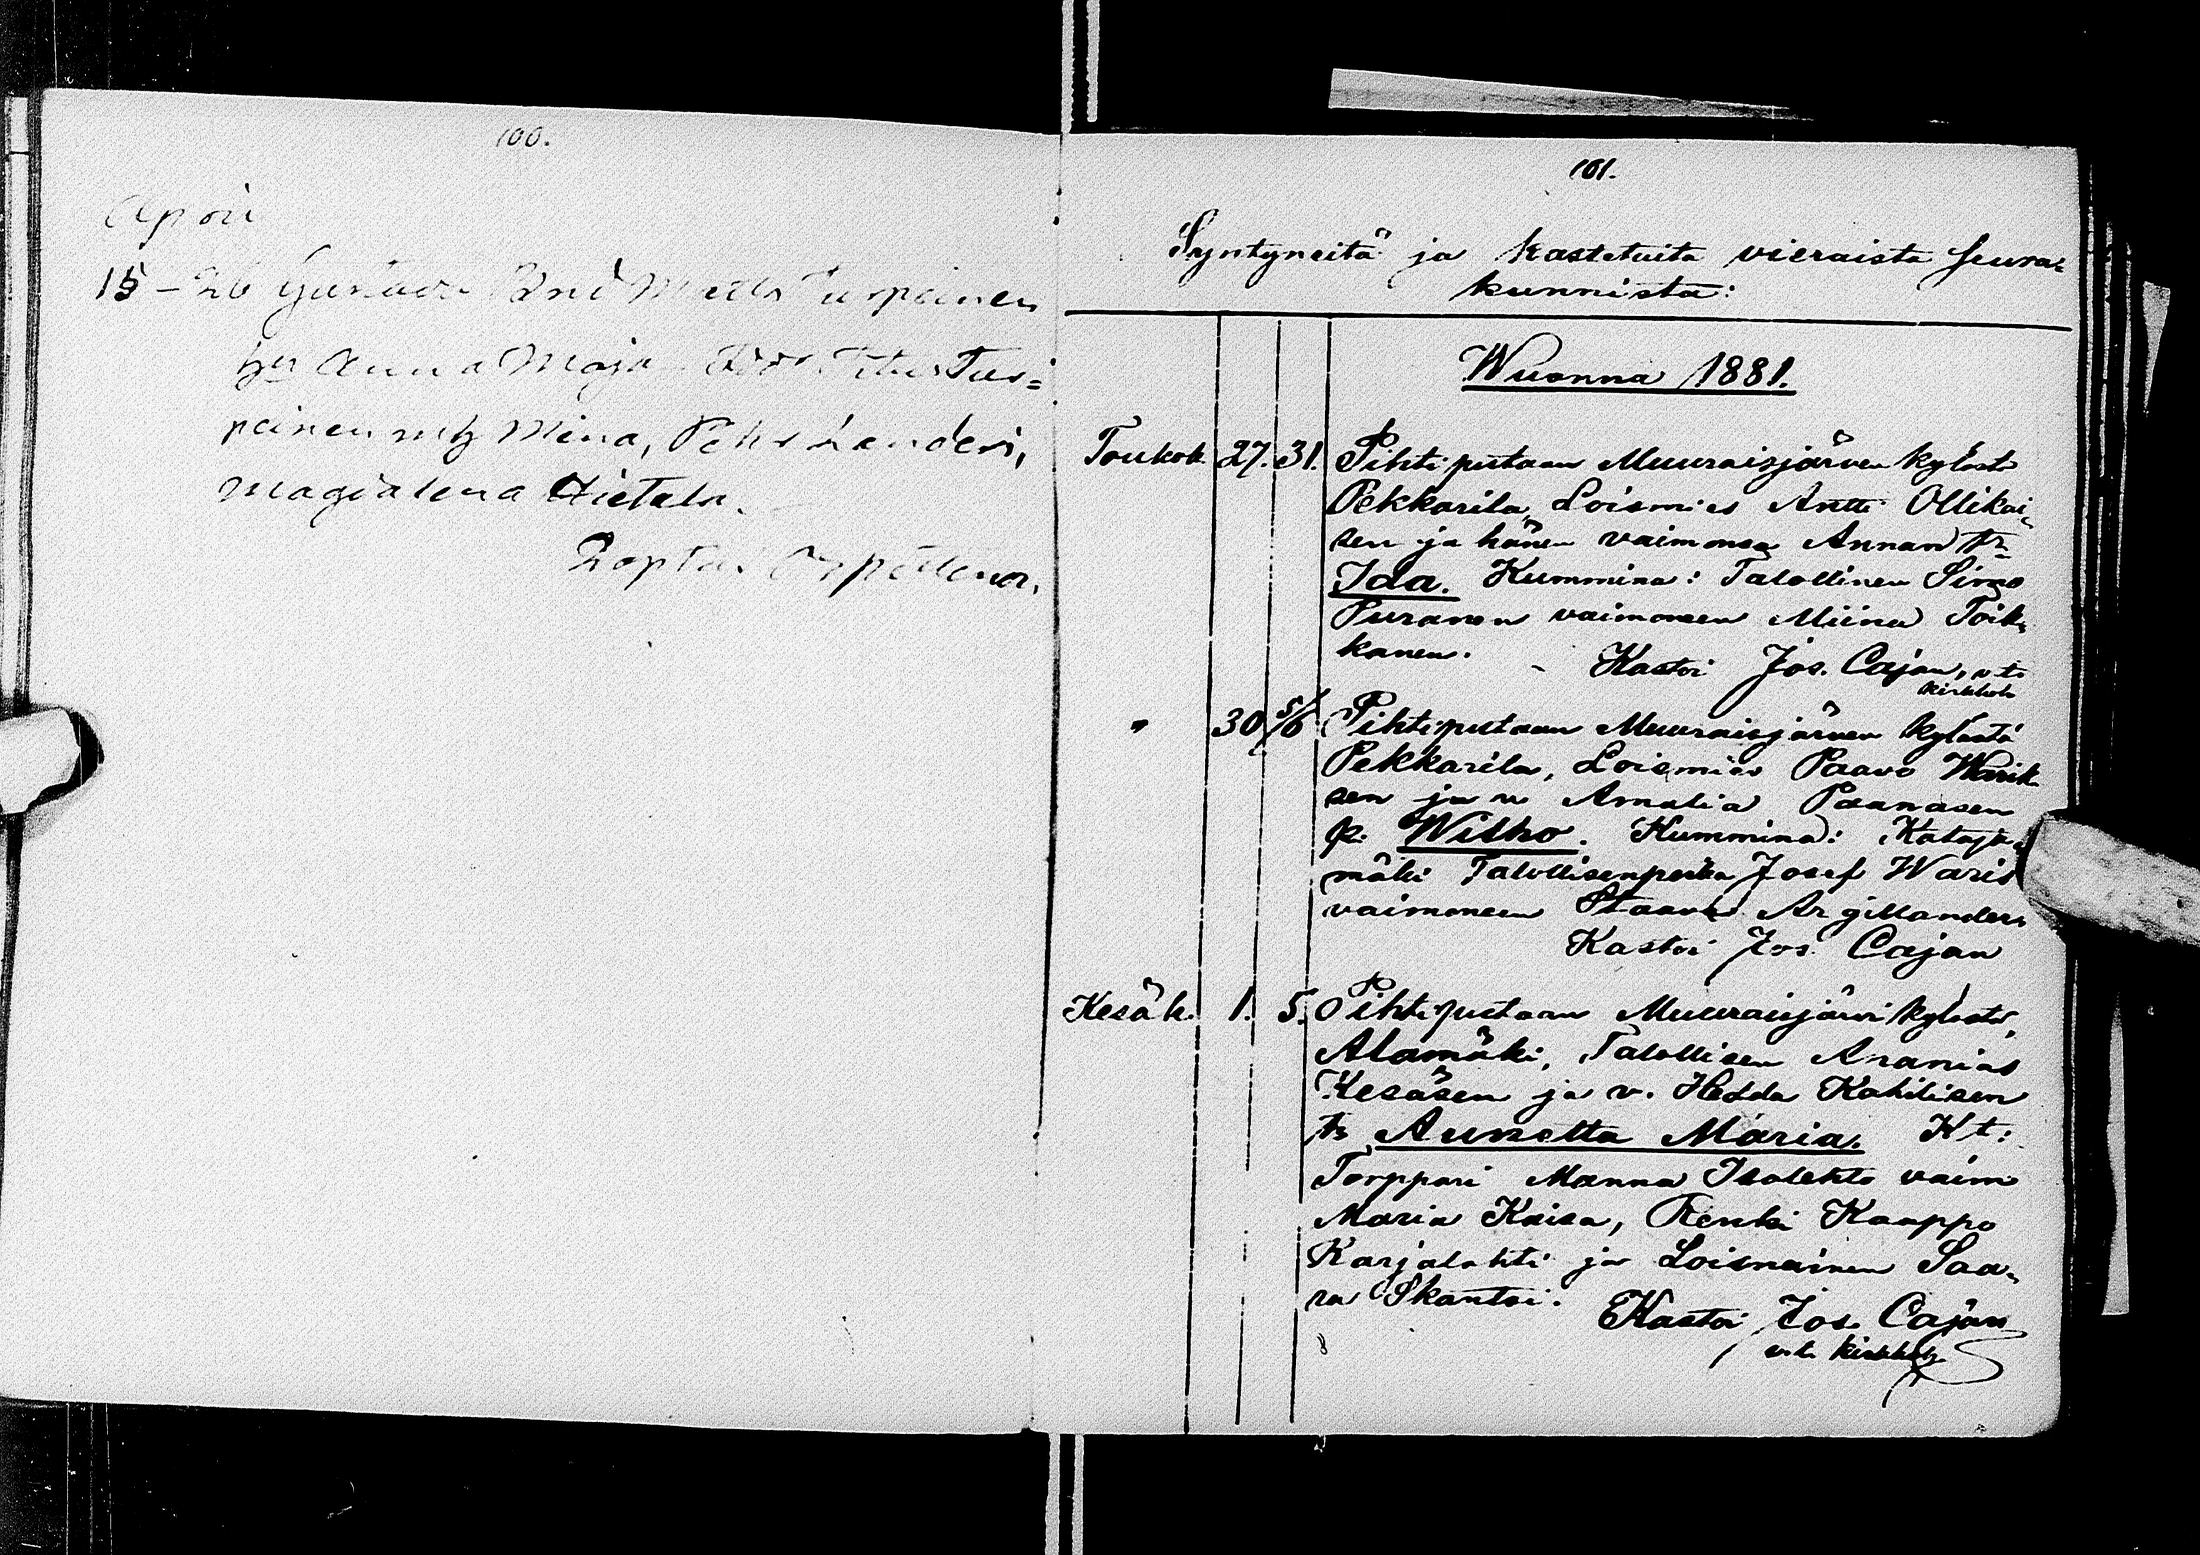 100.
April
15 - 26 Gustava Bnd Matts Turpeinen
h Anna Maja Titus Tur=
peinen m h Mina, Pehr Landers,
Magdalena Hietala.
101.
Syntyneitä ja kastetuita vieraista seura-
kunnista:
Wuonna 1881.
Toukok. 27. 31. Pihtiputaan Muuraisjärven kylästä
Pekkarila, Loismies Antti Ollikai-
sen ja hänen vaimonsa Annan tr-
Ida. Kummina: Talollinen Simo
Puranen vaimoneen Miina Toik-
kanen. - Kastoi Jos. Cajan, v.t.
kirkkoh
" 30 5/6 Pihtiputaan Muuraisjärven kylästä
Pekkarila, Loismies Paavo Warik
sen ja v Amalia Paanasen
p. Wilho. Kummina: Kataja-
mäki Talollisenpoika Josef Waris
vaimoneen Staava Argillander.
Kastoi Jos. Cajan
Kesäk. 1. 5. Pihtiputaan Muuraisjärvi kylästä,
Alamäki, Talollisen Ananias
Kesäsen ja v. Hedda Kahilisen
tr Aunetta Maria. Kt:
Torppari Manna Isolehto vaim
Maria Kaisa, Renki Kaappo
Karjalahti ja Loisnainen Saa-
ra Skantsi.
Kastoi Jos. Cajan
v.t. kirkkoh